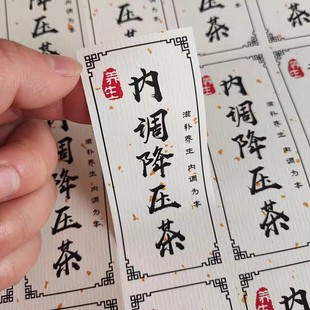 养生
内调降压茶
滋补养生 内调为本